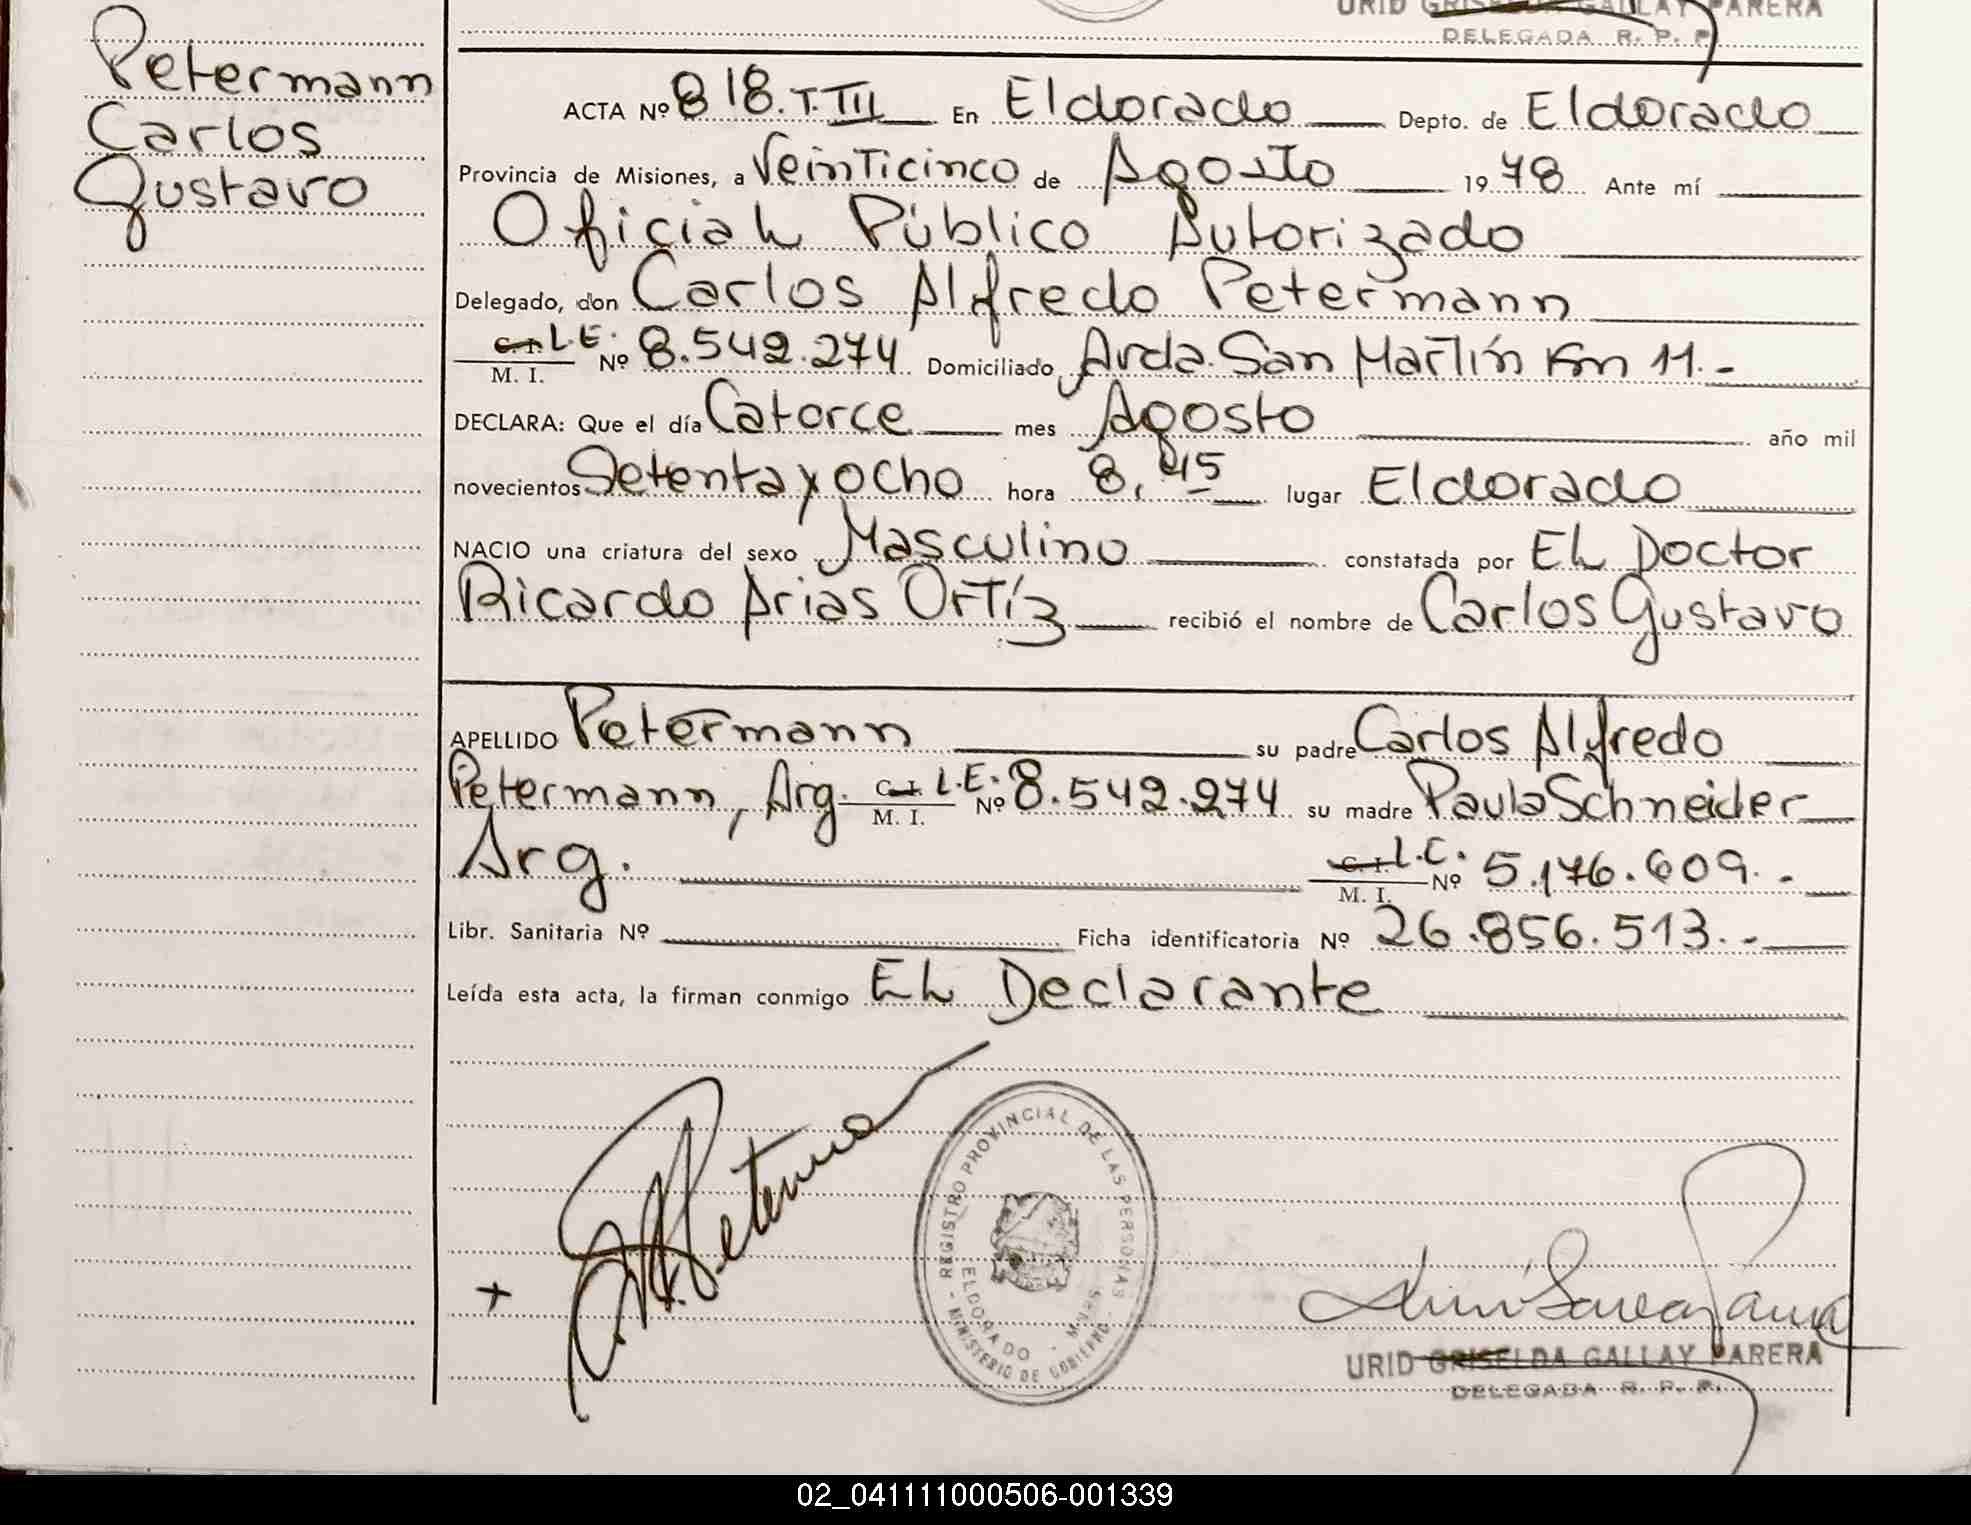 URID GRISELDA GALLAY PARERA
DELEGADA R. P. P.
Petermann
Carlos
Gustavo
ACTA Nº 818.T.III En Eldorado Depto. de Eldorado
Provincia de Misiones, a Veinticinco de Agosto 1978 Ante mí
Oficial Público Autorizado
Delegado, don Carlos Alfredo Petermann
C.I. L.E. Nº 8.542.274 Domiciliado Avda. San Martín Km 11.-
M. I.
DECLARA: Que el día Catorce mes Agosto año mil
novecientos Setenta y ocho hora 8,45 lugar Eldorado
NACIO una criatura del sexo Masculino constatada por El Doctor
Ricardo Arias Ortíz recibió el nombre de Carlos Gustavo
APELLIDO Petermann su padre Carlos Alfredo
Petermann, Arg. C.I. L.E. Nº 8.542.274 su madre Paula Schneider
M. I.
Arg. C.I. L.C. Nº 5.176.609.-
M. I.
Libr. Sanitaria Nº Ficha identificatoria Nº 26.856.513.-
Leída esta acta, la firman conmigo El Declarante
REGISTRO PROVINCIAL DE LAS PERSONAS
ELDORADO - Mnes
- MINISTERIO DE GOBIERNO -
URID GRISELDA GALLAY PARERA
DELEGADA R. P. P.
02_041111000506-001339